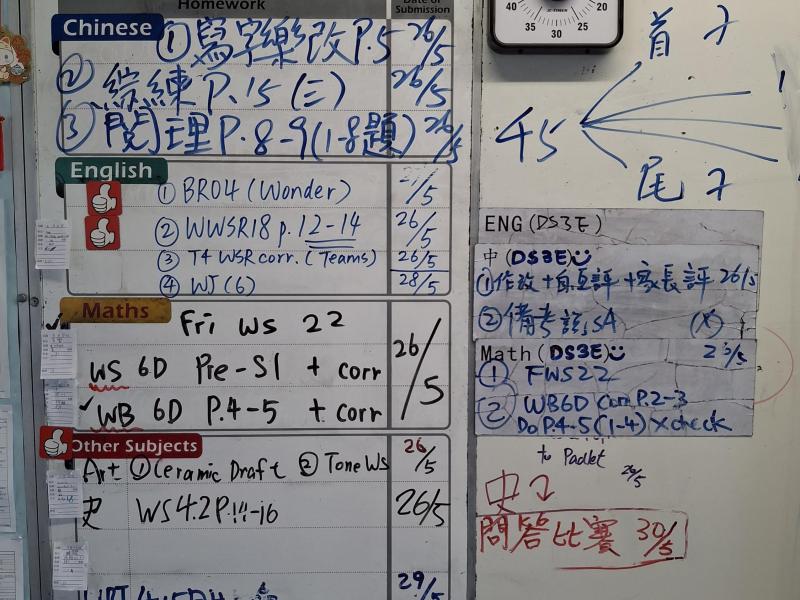 Homework
Date of Submission
Chinese
① 寫字樂改 P.5 26/5
② 綜練 P.15 (三) 26/5
③ 閱理 P.8-9 (1-8題) 26/5
English
① BR04 (Wonder) /5
② WWSR18 p. 12-14 26/5
③ T4 WSR corr. (Teams) 26/5
④ WJ (6) 28/5
Maths
Fri WS 22
WS 6D Pre-S1 + corr
✓ WB 6D P.4-5 + corr
26/5
Other Subjects
Art ① Ceramic Draft ② Tone WS 26/5
史 WS 4.2 P.11-16 26/5
29/5
40
35
30
25
20
首
45
尾
ENG (DS3E)
中 (DS3E)
① 作改 + 自互評 + 家長評 26/5
② 備考 SA (X)
Math (DS3E)
① FWS22
② WB6D Corr P.2-3
Do P.4-5 (1-4) X check
to Padlet 26/5
史
問答比賽 30/5